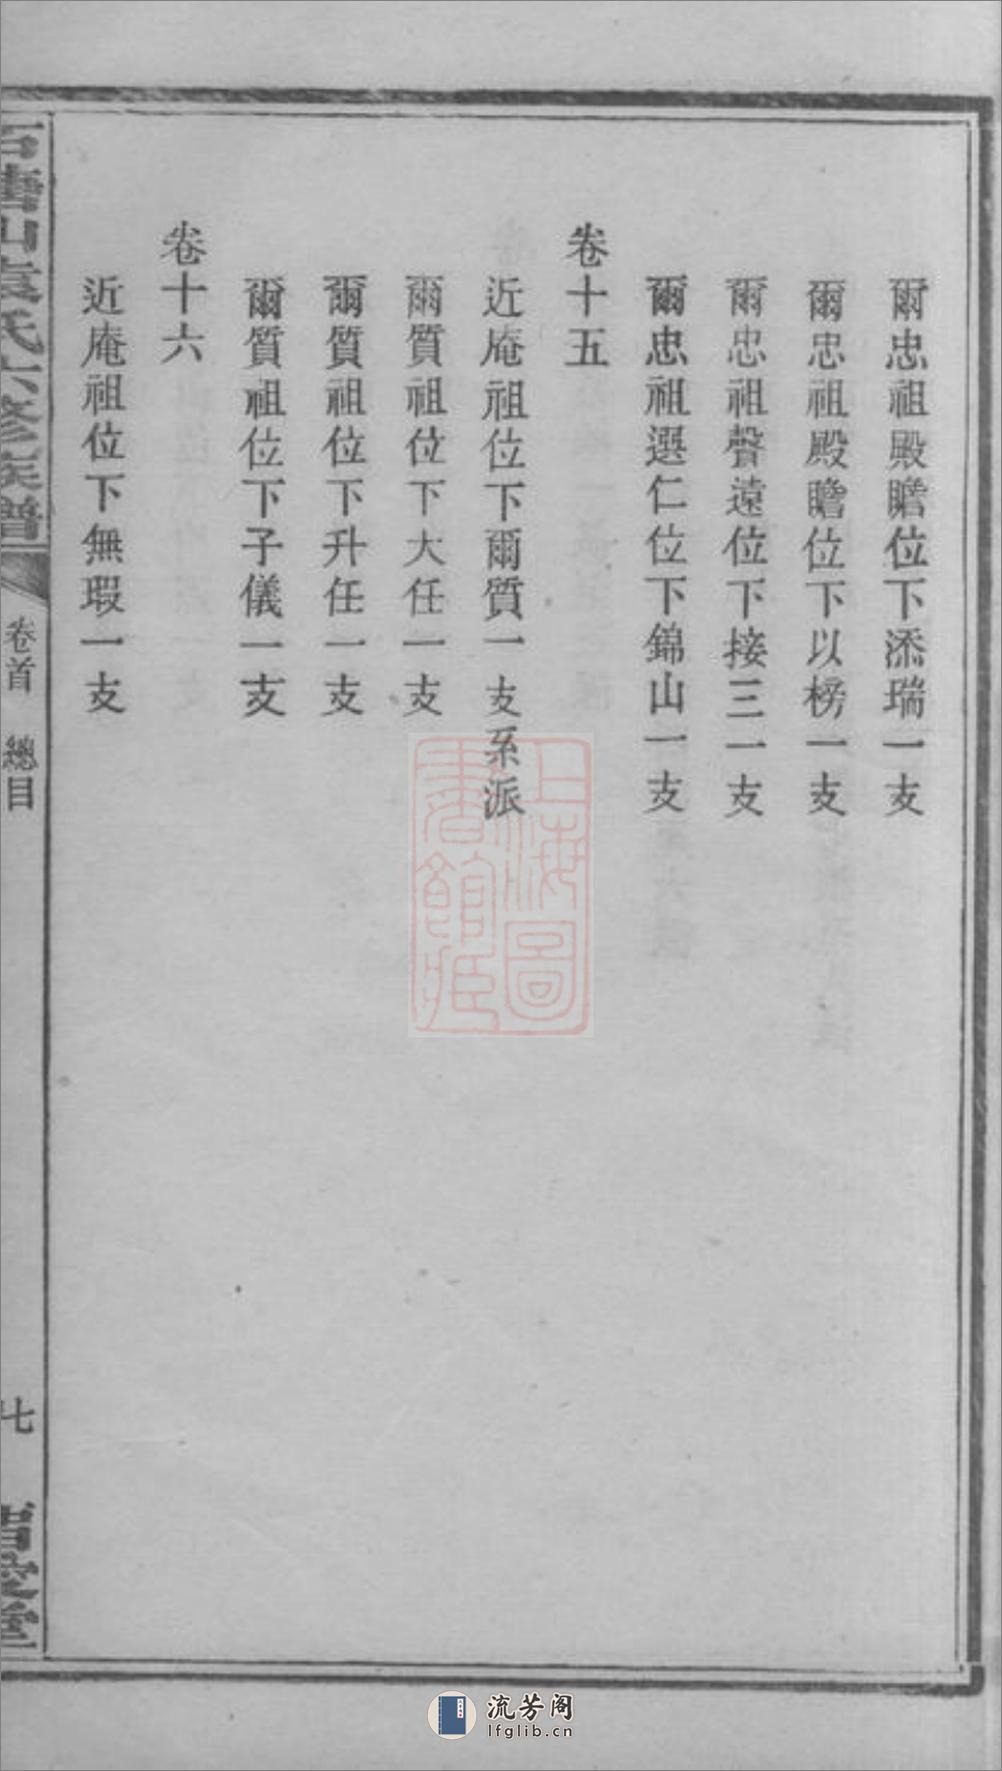 爾忠祖殿瞻位下添瑞一支
爾忠祖殿瞻位下以榜一支
爾忠祖聲遠位下接三一支
爾忠祖選仁位下錦山一支
卷十五
近庵祖位下爾質一支系派
爾質祖位下大任一支
爾質祖位下升任一支
爾質祖位下子儀一支
卷十六
近庵祖位下無瑕一支
石塘山袁氏六修族譜
卷首 總目
七
上海圖書館藏
流芳阁
lfglib.cn